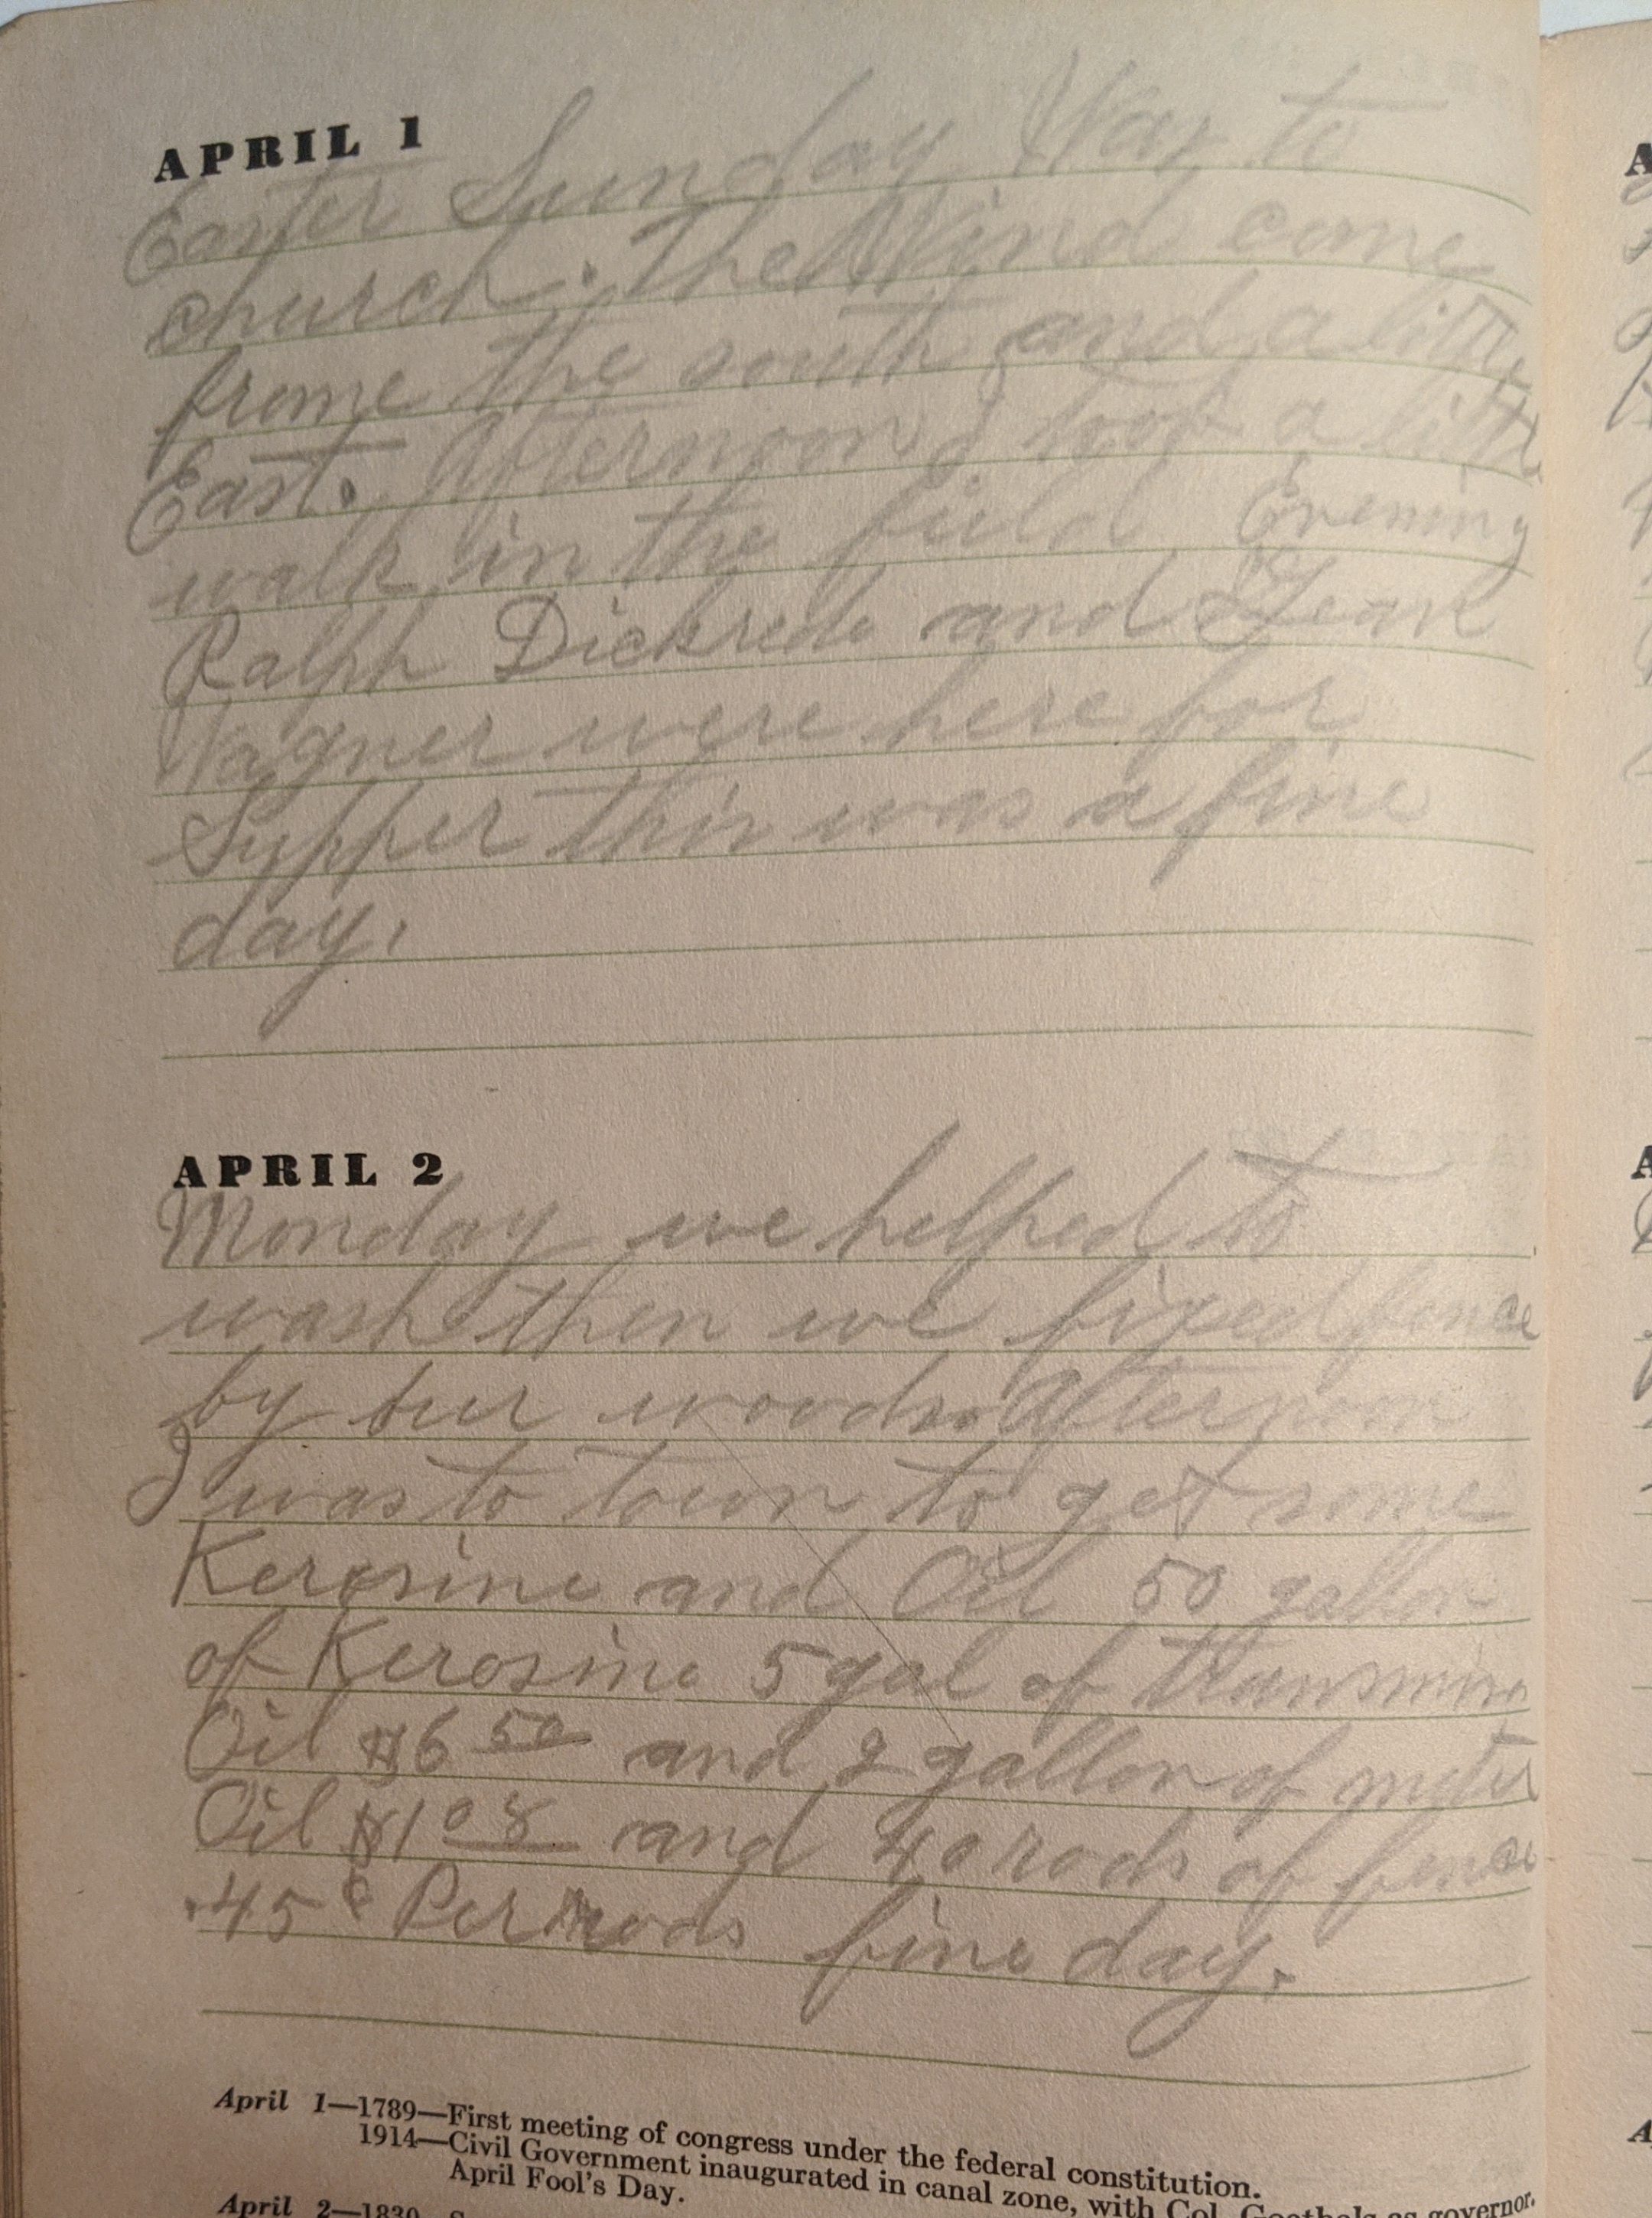 APRIL 1
Easter Sunday Was to
church. The Wind come
frome the south and a little
East. Afternoon I took a little
walk in the field Evening
Ralph and
Wagner were here for
Supper this was a fine
day.
APRIL 2
Monday we helped to
wash then we fixed fence
by our woods. Afternoon
I was to town to get some
Kerosine and Oil 50 gallon
of Kerosine 5 gal of
Oil $6 50 and 2 gallon of
Oil $1 08 and 40 rods of fence
.45¢ Per rods fine day.
April 1—1789—First meeting of congress under the federal constitution.
1914—Civil Government inaugurated in canal zone, with Col. Goethals as governor.
April Fool's Day.
April 2—1830